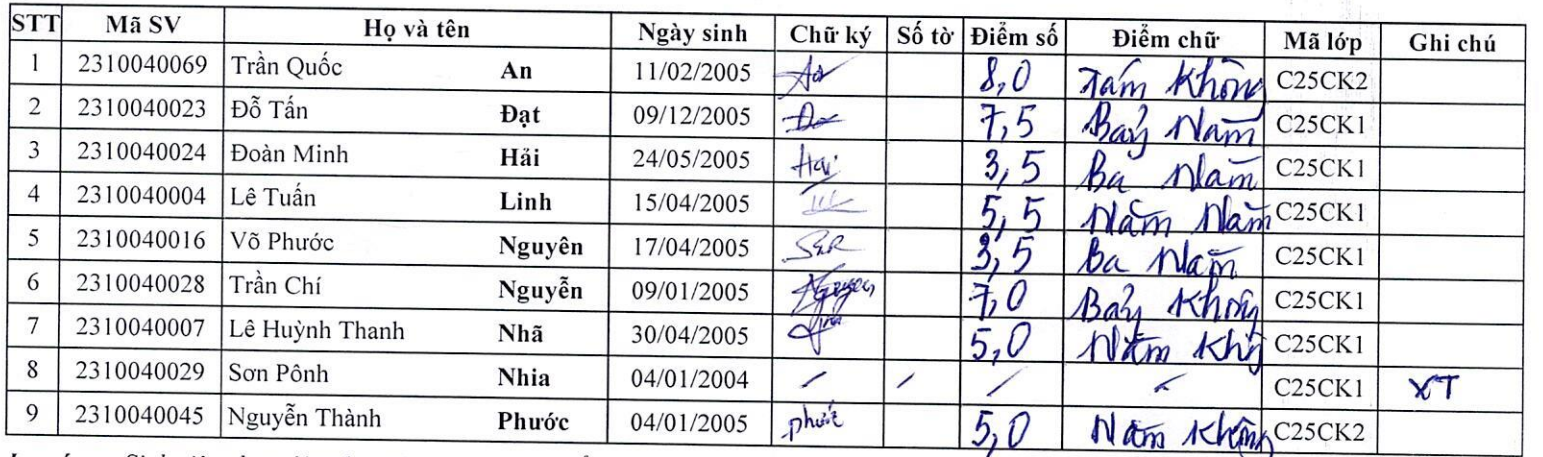 STT Mã SV Họ và tên Ngày sinh Chữ ký Số tờ Điểm số Điểm chữ Mã lớp Ghi chú
1 2310040069 Trần Quốc An 11/02/2005 8,0 Tám Không C25CK2
2 2310040023 Đỗ Tấn Đạt 09/12/2005 7,5 Bảy Năm C25CK1
3 2310040024 Đoàn Minh Hải 24/05/2005 Hai 3,5 Ba Năm C25CK1
4 2310040004 Lê Tuấn Linh 15/04/2005 5,5 Năm Năm C25CK1
5 2310040016 Võ Phước Nguyên 17/04/2005 3,5 Ba Năm C25CK1
6 2310040028 Trần Chí Nguyễn 09/01/2005 Nguyen 7,0 Bảy Không C25CK1
7 2310040007 Lê Huỳnh Thanh Nhã 30/04/2005 5,0 Năm Không C25CK1
8 2310040029 Sơn Pônh Nhia 04/01/2004 / / / / C25CK1 XT
9 2310040045 Nguyễn Thành Phước 04/01/2005 phước 5,0 Năm Không C25CK2